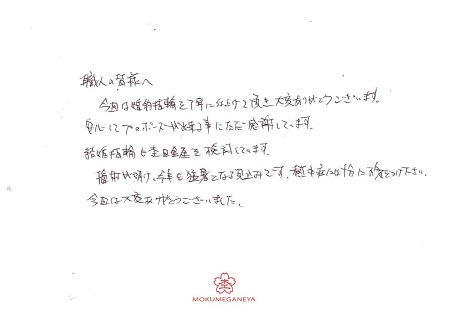 職人の皆様へ
今回は婚約指輪を丁寧に仕上げて頂き大変ありがとうございます。
安心してプロポーズが出来る事にただ感謝しています。
結婚指輪も杢目金屋を検討しています。
梅雨が明け、今年も猛暑となる見込みです。熱中症には十分に気をつけて下さい。
今回は大変ありがとうございました。
MOKUMEGANEYA